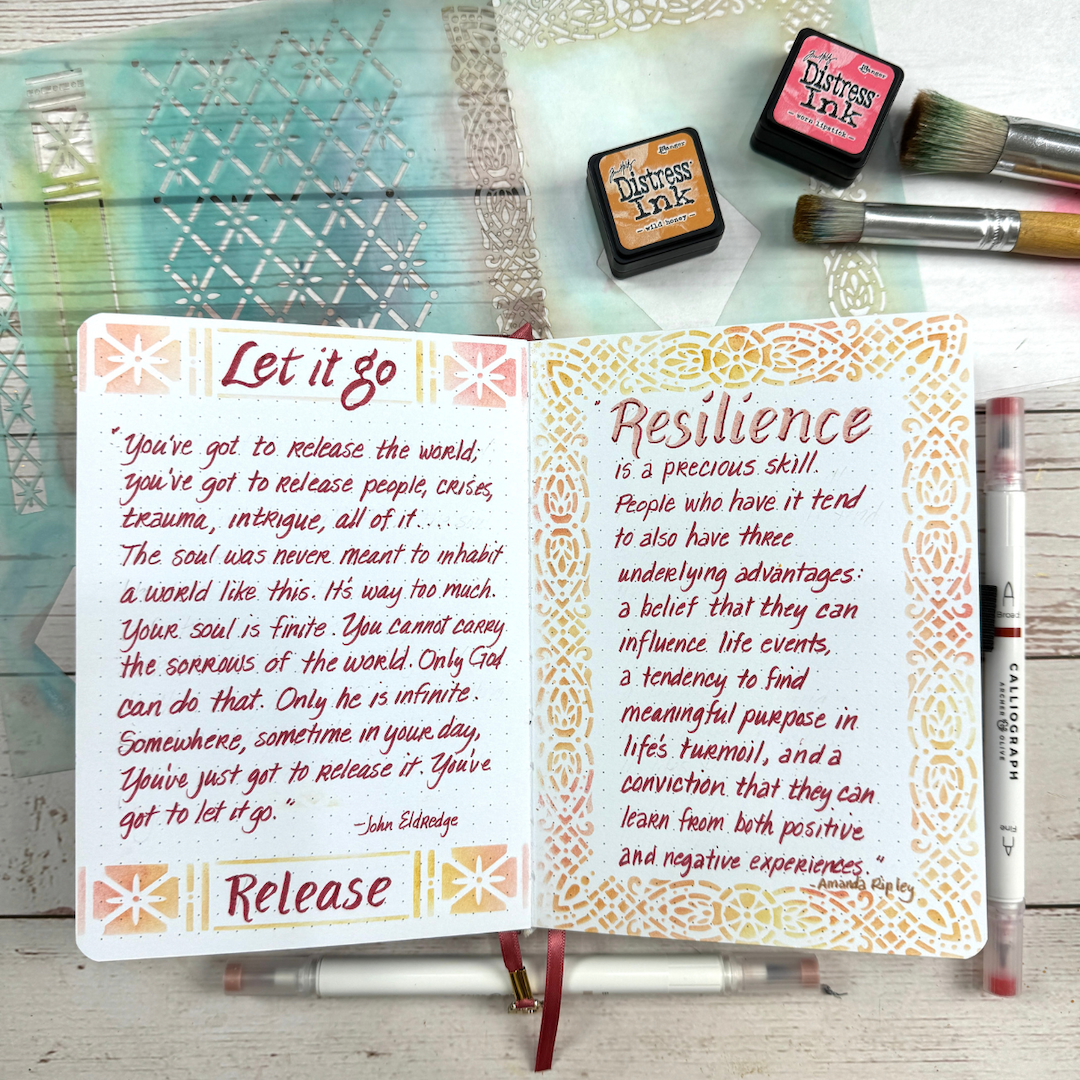 Tim Holtz
Ranger
Distress
Ink
— worn lipstick —
Tim Holtz
Ranger
Distress
Ink
— wild honey —
Let it go
"You've got to release the world;
you've got to release people, crises,
trauma, intrigue, all of it....
The soul was never meant to inhabit
a world like this. It's way too much.
Your soul is finite. You cannot carry
the sorrows of the world. Only God
can do that. Only he is infinite.
Somewhere, sometime in your day,
You've just got to release it. You've
got to let it go."
—John Eldredge
Release
"Resilience
is a precious skill.
People who have it tend
to also have three
underlying advantages:
a belief that they can
influence life events,
a tendency to find
meaningful purpose in
life's turmoil, and a
conviction that they can
learn from both positive
and negative experiences."
-Amanda Ripley
Broad
CALLIOGRAPH
ARCHER & OLIVE
Fine